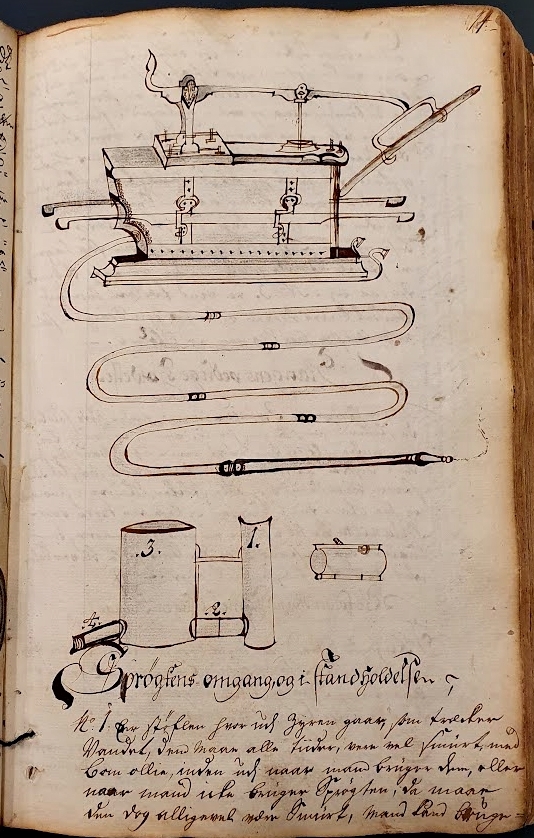 14.
.3.
1.
.2.
.4.
Sprögtens omgang, og i standholdelsen
No 1. Er Stöflen hvor udj Zyren gaar, som trecker
Vandet, den maae alle tider, vere vel smurt, med
Bom ollie, inden udj naar mand bruger dem, eller
naar mand icke bruger Sprögten, da maae
den dog alligevel være Smurt, mand kand bruge=